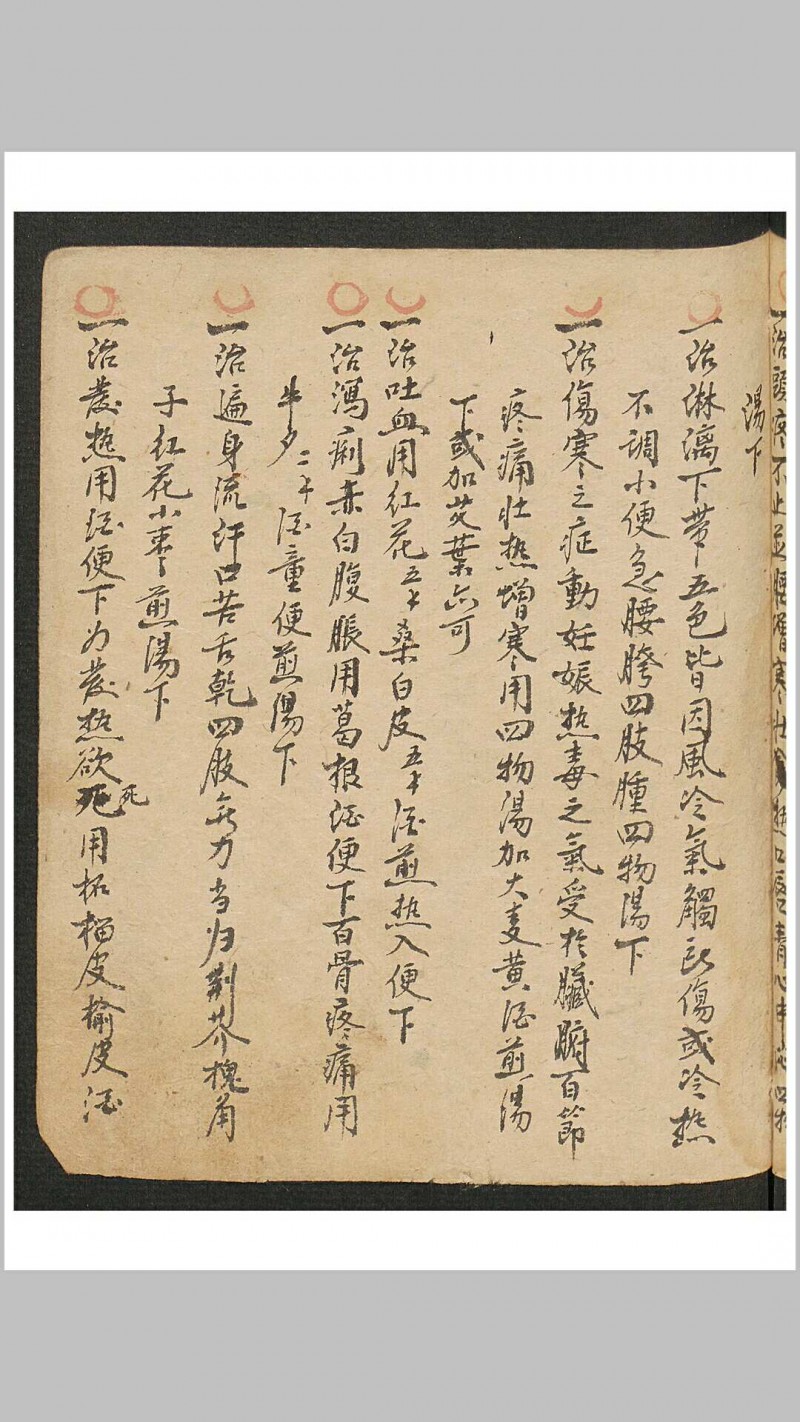 一治頭疼不止並腰增寒壯熱口唇青心中
湯下
一治淋漓下帶五色皆因風冷氣觸於傷或冷热
不調小便急腰胯四肢腫四物湯下
一治傷寒之症動妊娠热毒之氣受於臟腑百節
疼痛壮热增寒用四物湯加大麦黄酒煎湯
下或加艾葉亦可
一治吐血用红花五十桑白皮五十酒煎热入便下
一治瀉痢赤白腹脹用葛根酒便下百骨疼痛用
牛夕二十酒童便煎湯下
一治遍身流汗口苦舌乾四肢无力当归荆芥槐角
子红花小枣煎湯下
一治發热用酒便下为發热欲死死用柘榴皮榆皮酒